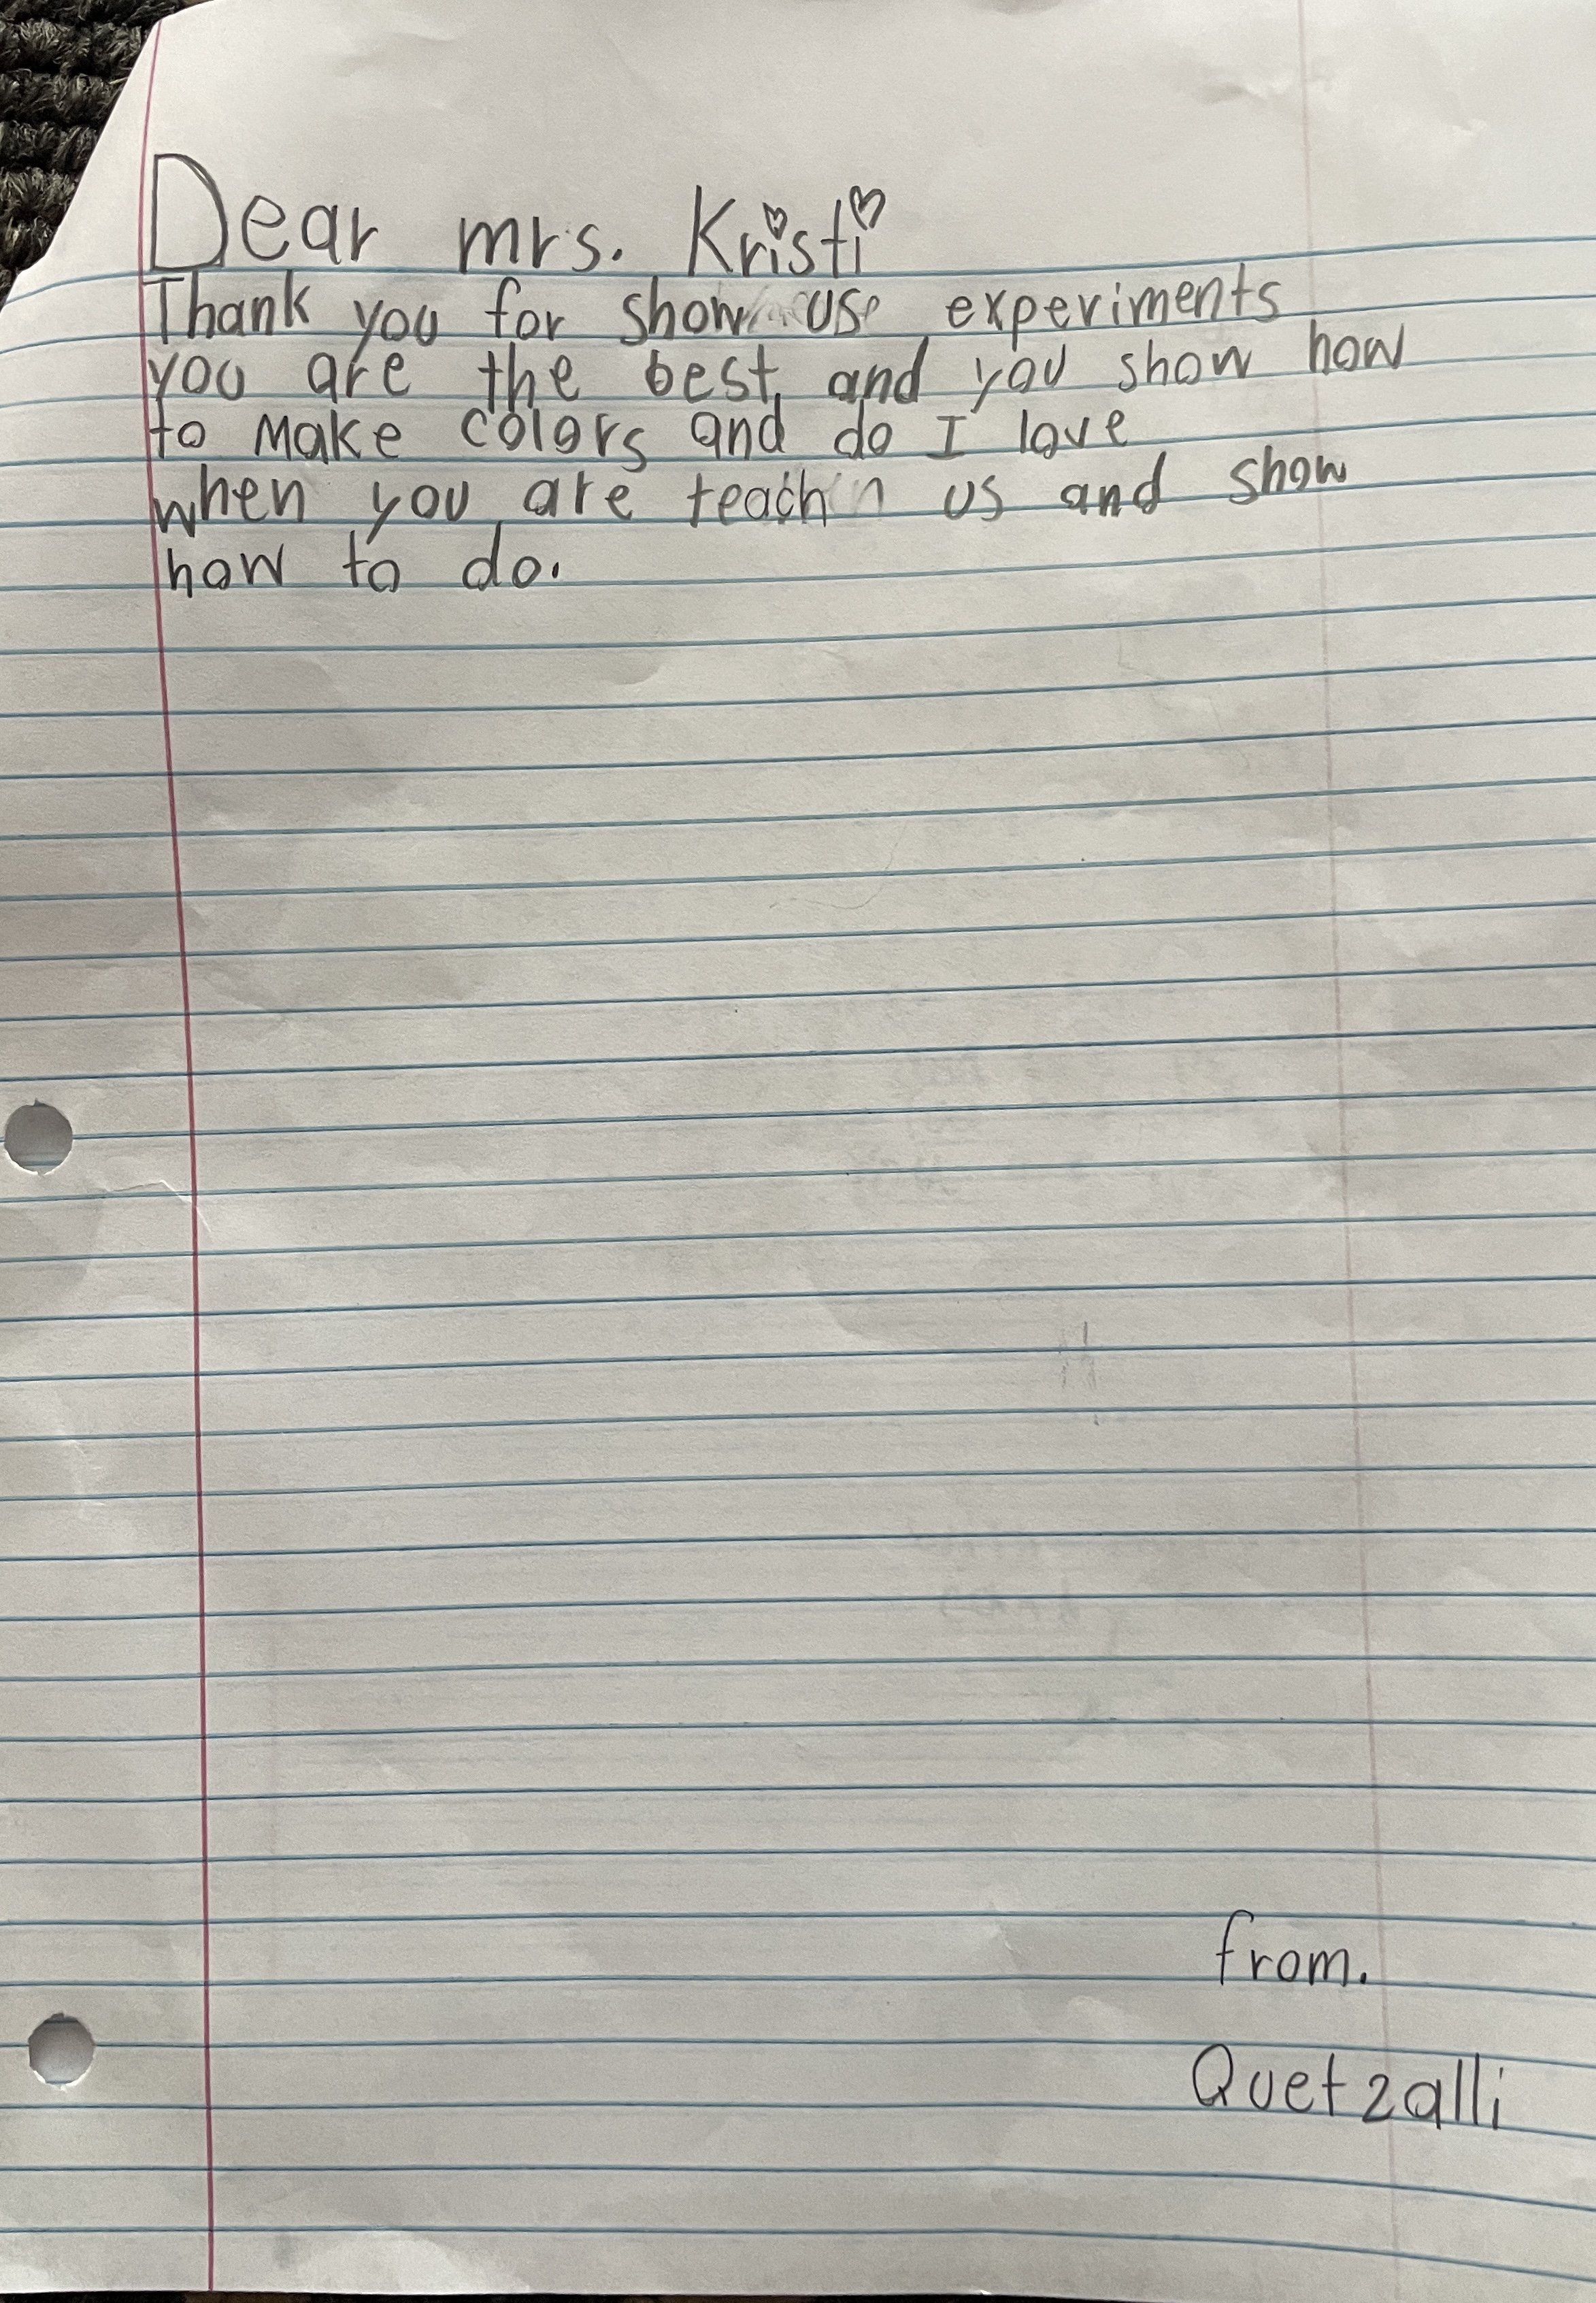 Dear mrs. Kristi
Thank you for show use experiments
you are the best and you show how
to make colors and do I love
when you are teachin us and show
how to do.
from.
Quetzalli